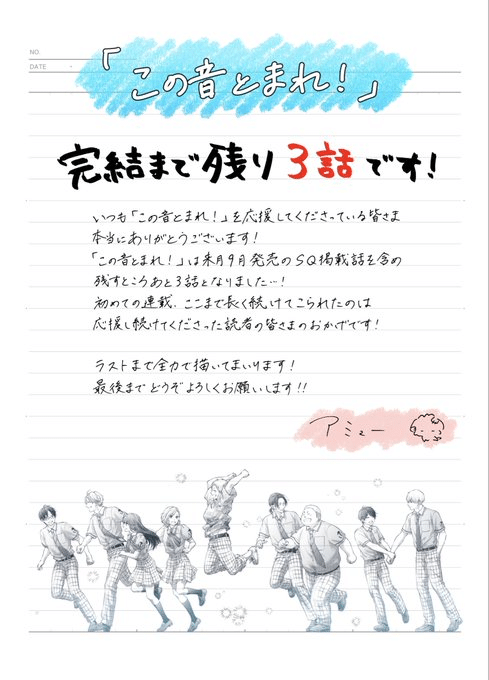 NO.
DATE
「この音とまれ!」
完結まで残り3話です!
いつも「この音とまれ!」を応援してくださっている皆さま
本当にありがとうございます!
「この音とまれ!」は来月9月発売のSQ掲載話を含め
残すところあと3話となりました…!
初めての連載、ここまで長く続けてこられたのは
応援し続けてくださった読者の皆さまのおかげです!
ラストまで全力で描いてまいります!
最後までどうぞよろしくお願いします!!
アミュー